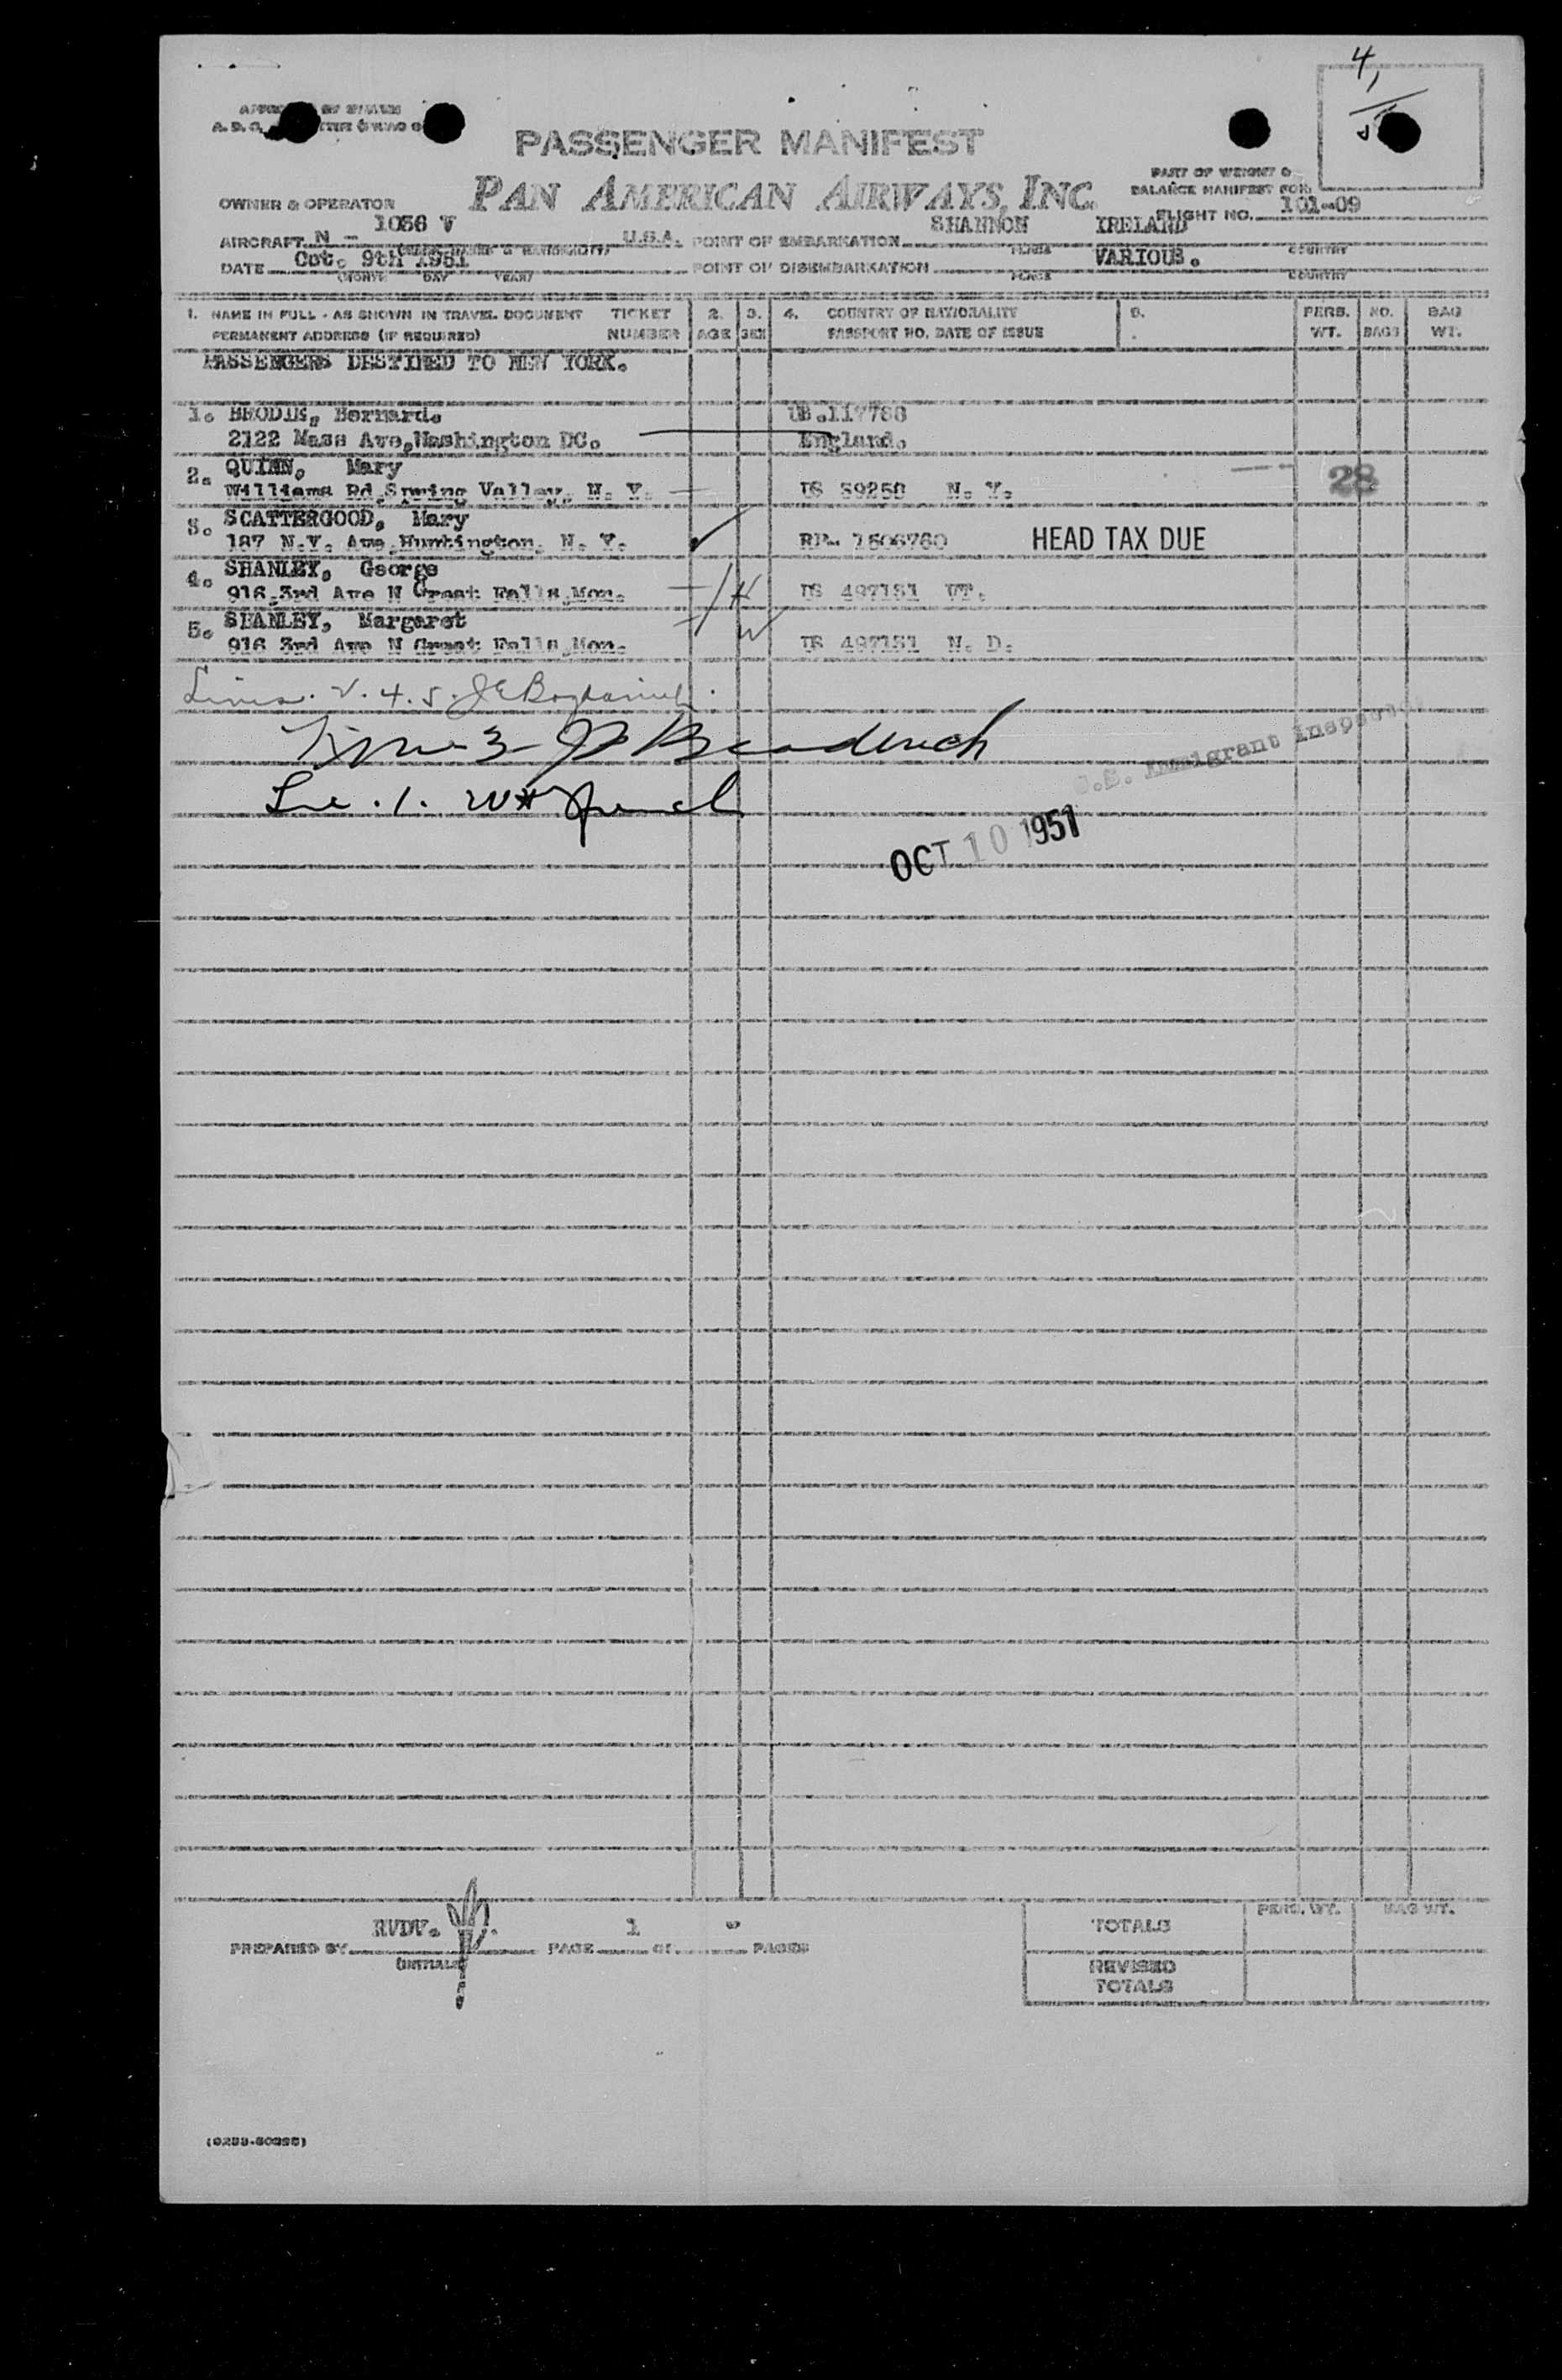 4,
PASSENGER MANIFEST
PART OF WEIGHT &
BALANCE MANIFEST FOR
OWNER & OPERATOR PAN AMERICAN AIRWAYS, INC.
FLIGHT NO. 101-09
AIRCRAFT N - 1036 V U.S.A. POINT OF EMBARKATION SHANNON IRELAND
PLACE COUNTRY
DATE Oct. 9th 1951 POINT OF DISEMBARKATION VARIOUS.
(MONTH DAY YEAR) PLACE COUNTRY
1. NAME IN FULL - AS SHOWN IN TRAVEL DOCUMENT TICKET 2. 3. 4. COUNTRY OF NATIONALITY 5. PERS. NO. BAG
PERMANENT ADDRESS (IF REQUIRED) NUMBER AGE SEX PASSPORT NO. DATE OF ISSUE WT. BAGS WT.
PASSENGERS DESTINED TO NEW YORK.
1. BRODIE, Bernard.
2122 Mass Ave, Washington DC. England.
2. QUINN, Mary
Williams Rd, Spring Valley, N. Y. US 59250 N. Y. 28
3. SCATTERGOOD, Mary
187 N.Y. Ave, Huntington, N. Y. HEAD TAX DUE
4. SHANLEY, George
916, 3rd Ave N Great Falls, Mon. US 497151 VT.
5. SHANLEY, Margaret
916 3rd Ave N Great Falls, Mon. US 497151 N. D.
U.S. Immigrant Inspector
OCT 10 1951
RVDV.
PREPARED BY PAGE 1 OF PAGES
(INITIALS)
PERS. WT. BAG WT.
TOTALS
REVISED
TOTALS